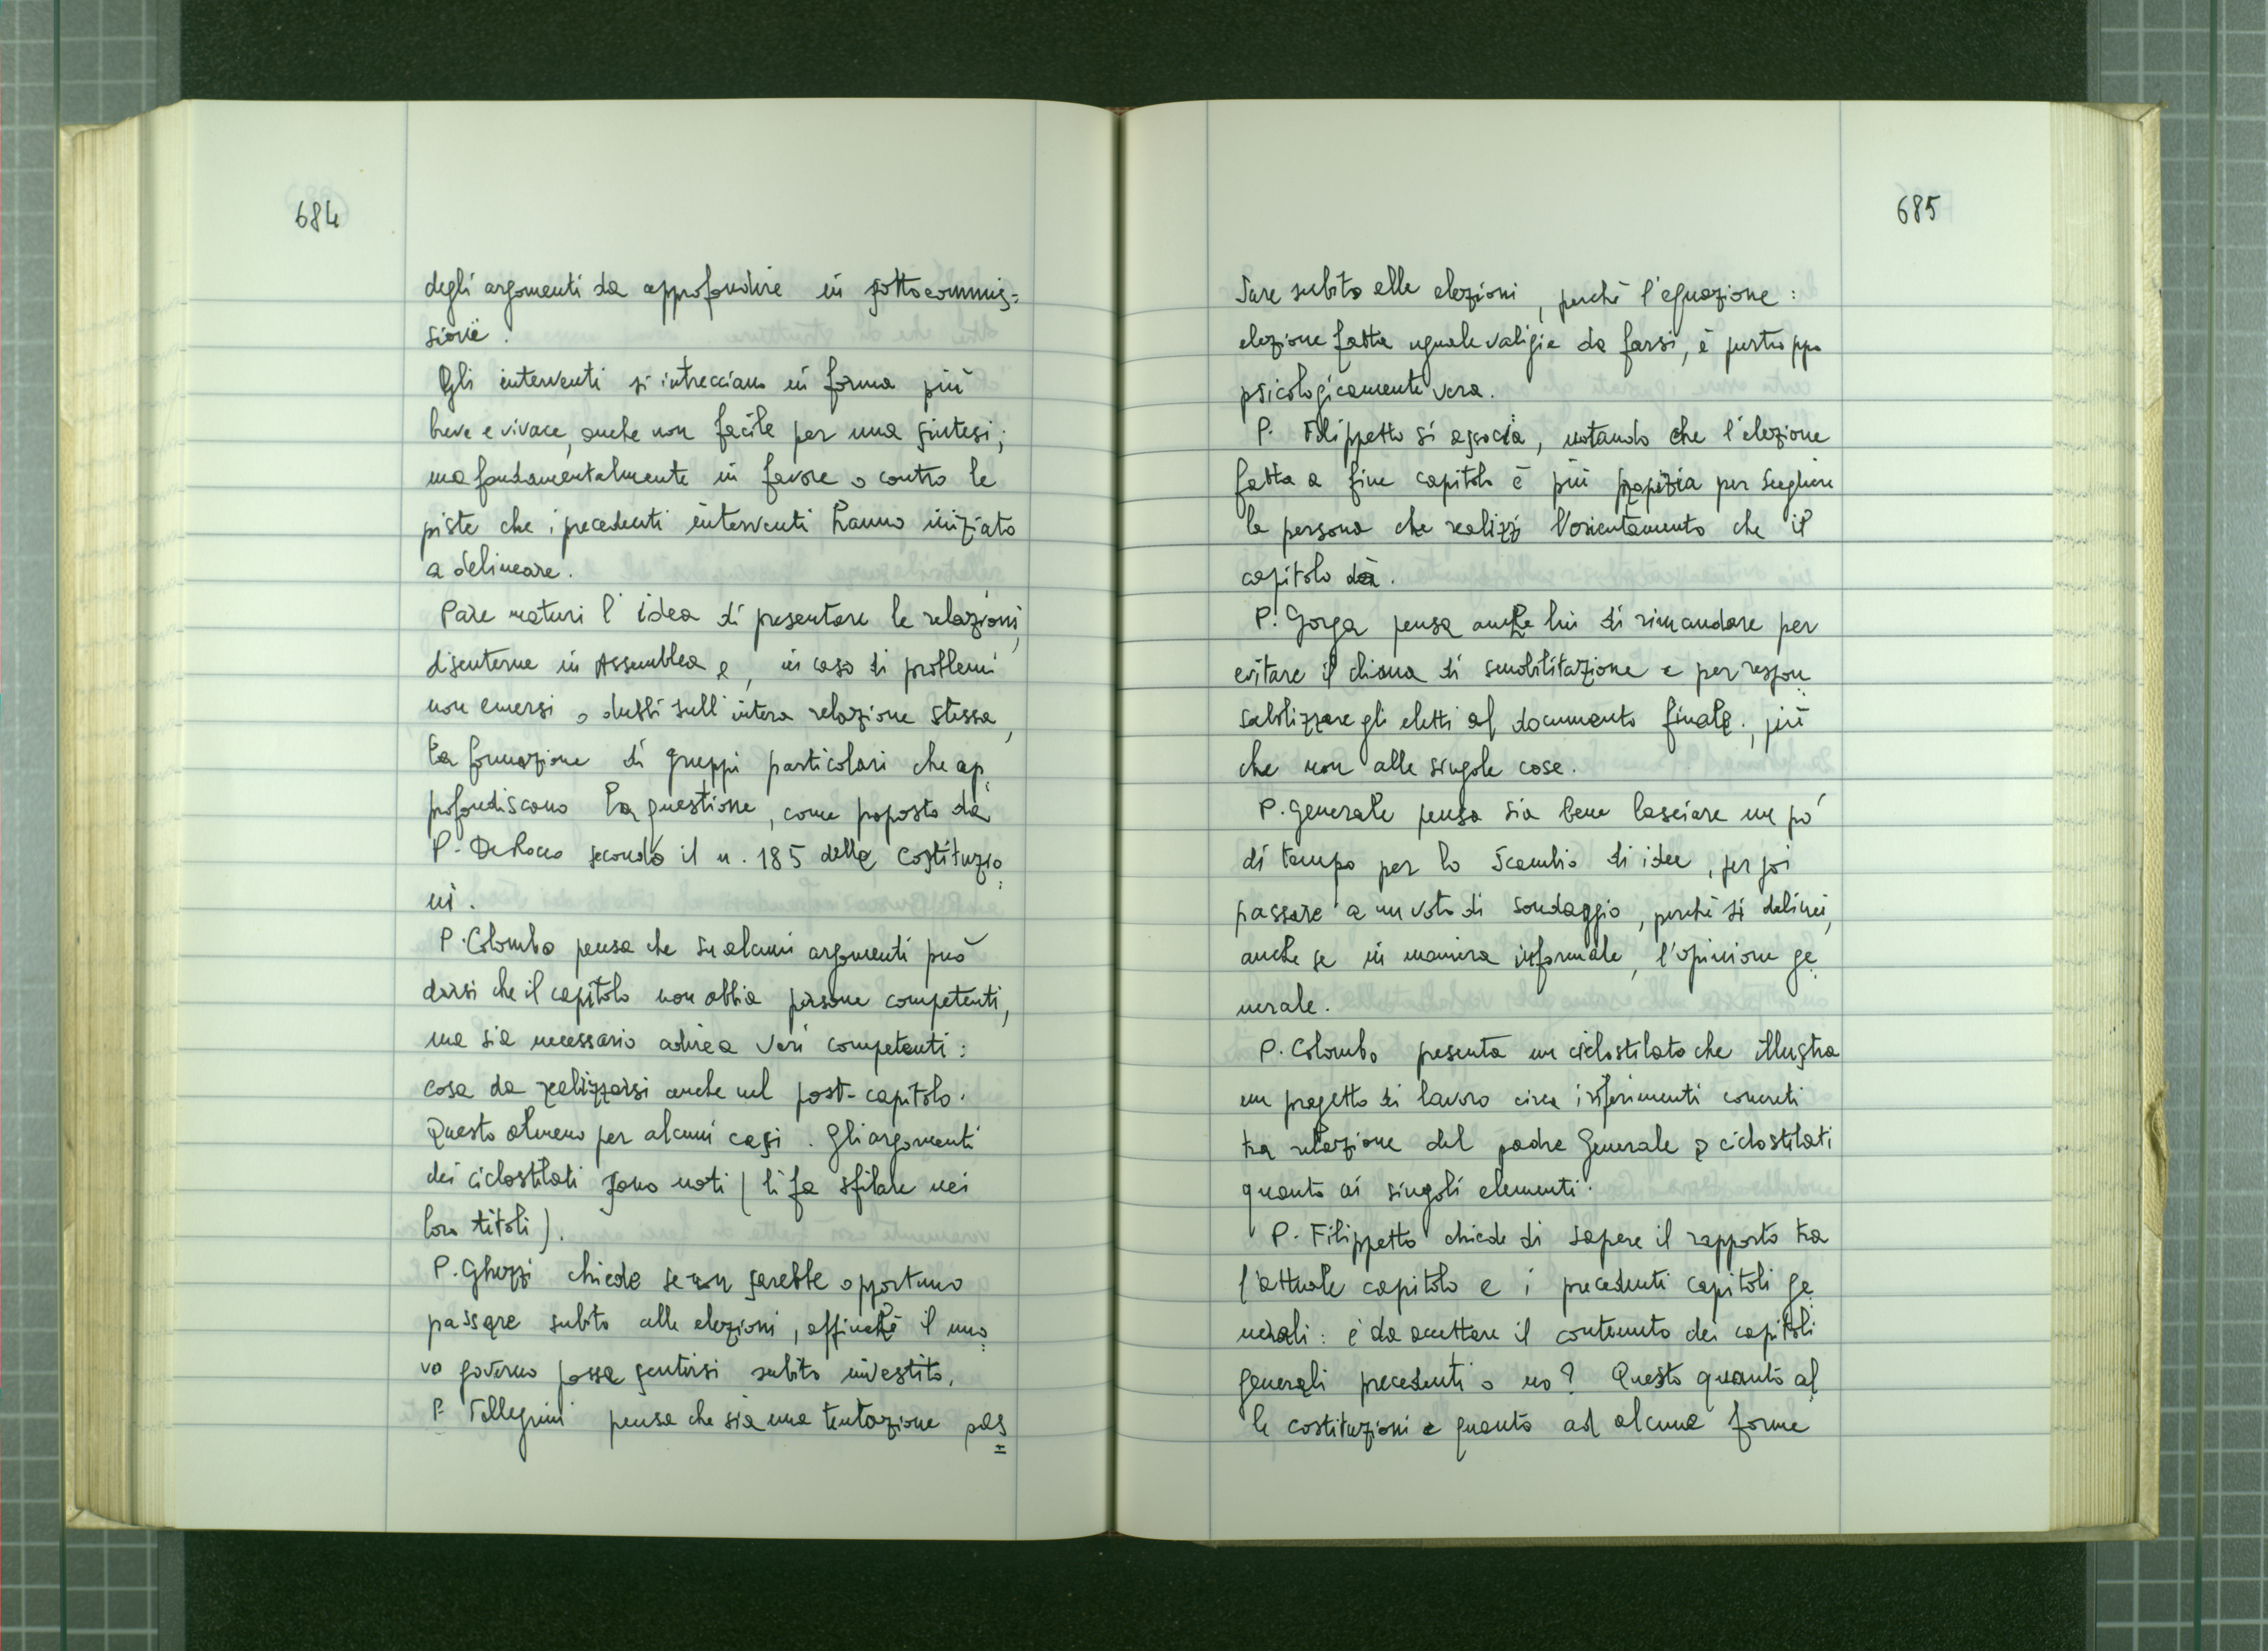 684
degli argomenti da approfondire in sottocommis=
sione.
Gli interventi si intrecciano in forma più
breve e vivace, anche non facile per una sintesi;
ma fondamentalmente in favore o contro le
piste che i precedenti interventi hanno iniziato
a delineare.
Pare maturi l'idea di presentare le relazioni,
discuterne in Assemblea e, in caso di problemi
non emersi o dubbi sull'intera relazione stessa,
la formazione di gruppi particolari che ap
profondiscano la questione, come proposto da
P. De Rocco secondo il n. 185 delle Costituzio
ni.
P. Colombo pensa che su alcuni argomenti può
darsi che il capitolo non abbia persone competenti,
ma sia necessario adire a veri competenti:
cosa da realizzarsi anche nel post-capitolo.
Questo almeno per alcuni casi. Gli argomenti
dei ciclostilati sono noti (li fa sfilare nei
loro titoli).
P. Ghezzi chiede se non sarebbe opportuno
passare subito alle elezioni, affinché il nuo
vo governo possa sentirsi subito investito.
P. Pellegrini pensa che sia una tentazione pas
685
sare subito alle elezioni, perché l'equazione:
elezione fatta uguale valigie da farsi, è purtroppo
psicologicamente vera.
P. Filippetto si associa, notando che l'elezione
fatta a fine capitolo è più propizia per scegliere
la persona che realizzi l'orientamento che il
capitolo dà.
P. Gorga pensa anche lui di rimandare per
evitare il clima di smobilitazione e per respon
sabilizzare gli eletti al documento finale, più
che non alle singole cose.
P. Generale pensa sia bene lasciare un pó
di tempo per lo scambio di idee, per poi
passare a un voto di sondaggio, perché si delinei,
anche se in maniera informale, l'opinione ge
nerale.
P. Colombo presenta un ciclostilato che illustra
un progetto di lavoro circa i riferimenti concreti
tra relazione del padre Generale e ciclostilati
quanto ai singoli elementi.
P. Filippetto chiede di sapere il rapporto tra
l'attuale capitolo e i precedenti capitoli ge
nerali: è da accettare il contenuto dei capitoli
generali precedenti o no? Questo quanto al
le costituzioni e quanto ad alcune forme